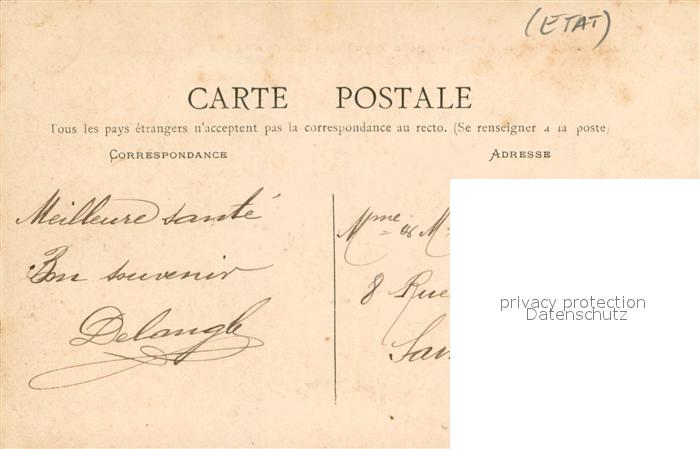 (ETAT)
CARTE POSTALE
Tous les pays étrangers n'acceptent pas la correspondance au recto. (Se renseigner à la poste)
CORRESPONDANCE
ADRESSE
Meilleure santé
Bon souvenir
Delangle
Mme & M
8 Rue
privacy protection
Datenschutz